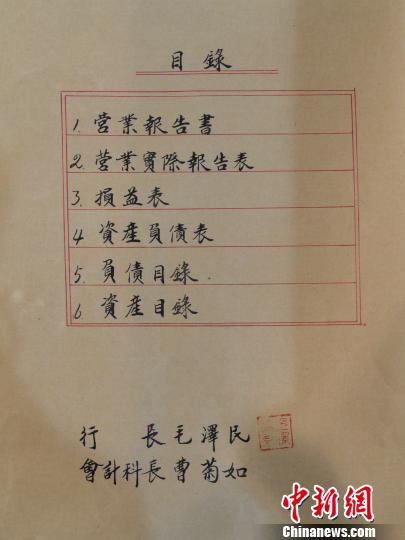 目錄
1. 营業報告書
2. 营業實際報告表
3. 損益表
4 資産負債表
5. 負債目錄.
6. 資産目錄
行 長 毛澤民
會計科長 曹菊如
中新網
Chinanews.com